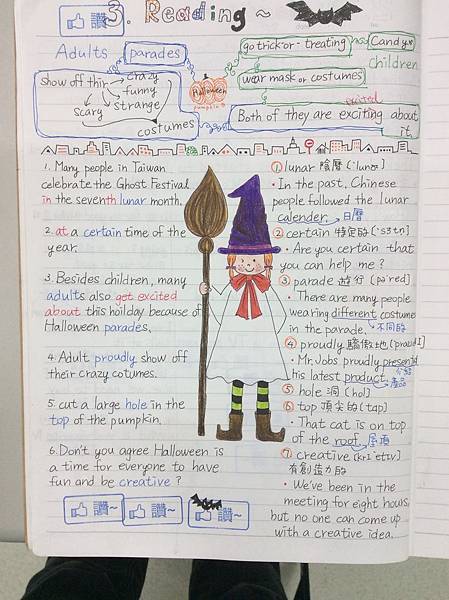 讚
3. Reading~
Adults
parades
go trick-or-treating
Candy
children
show off thir
crazy
funny
strange
scary
costumes
Halloween
pumpkin
wear mask or costumes
excited
Both of they are exciting about
it
1. Many people in Taiwan
celebrate the Ghost Festival
in the seventh lunar month.
2. at a certain time of the
year.
3. Besides children, many
adults also get excited
about this hoilday because of
Halloween parades.
4. Adult proudly show off
their crazy cotumes.
5. cut a large hole in the
top of the pumpkin.
6. Don't you agree Halloween is
a time for everyone to have
fun and be creative ?
讚~
讚~
讚~
① lunar 陰曆
• In the past, Chinese
people followed the lunar
calender. → 日曆
② certain 特定的
• Are you certain that
you can help me ?
③ parade 遊行
• There are many people
wearing different costumes
in the parade. 不同的
④ proudly 驕傲地
• Mr. Jobs proudly presented
his latest product. 產品
⑤ hole 洞 [hol]
⑥ top 頂尖的 [tap]
• That cat is on top
of the roof. 屋頂
⑦ creative
有創造力的
• We've been in the
meeting for eight hours,
but no one can come up
with a creative idea.